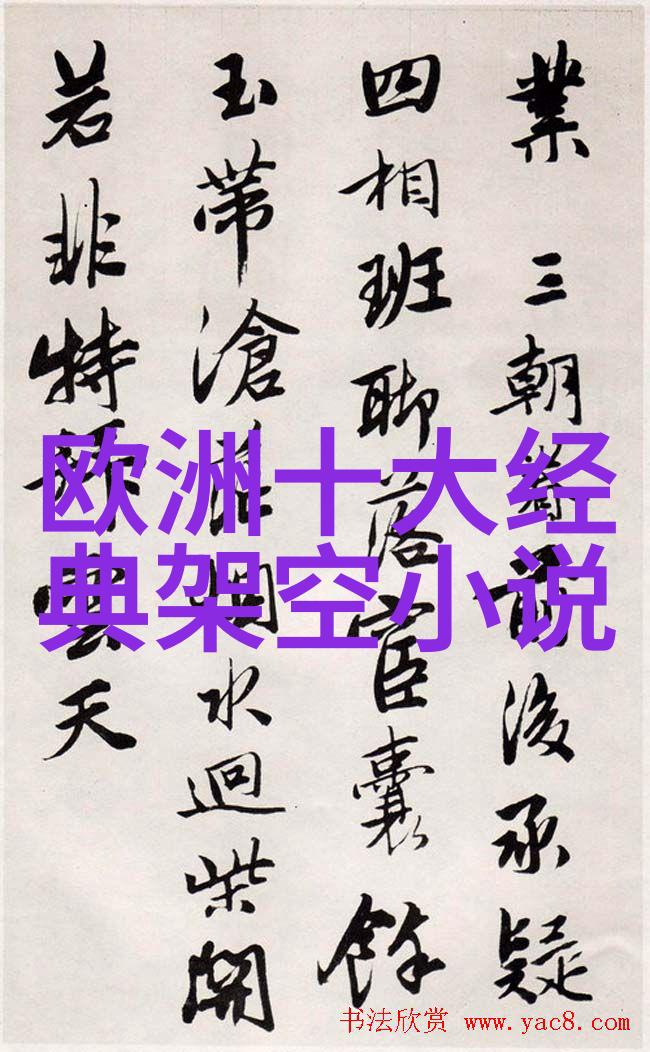 業 三朝前後承疑
四相班聊落宦囊餘
玉帶滄水迴柴開
若非特雲天
欧洲十大经
典架空小说
书法欣赏 www.yac8.com